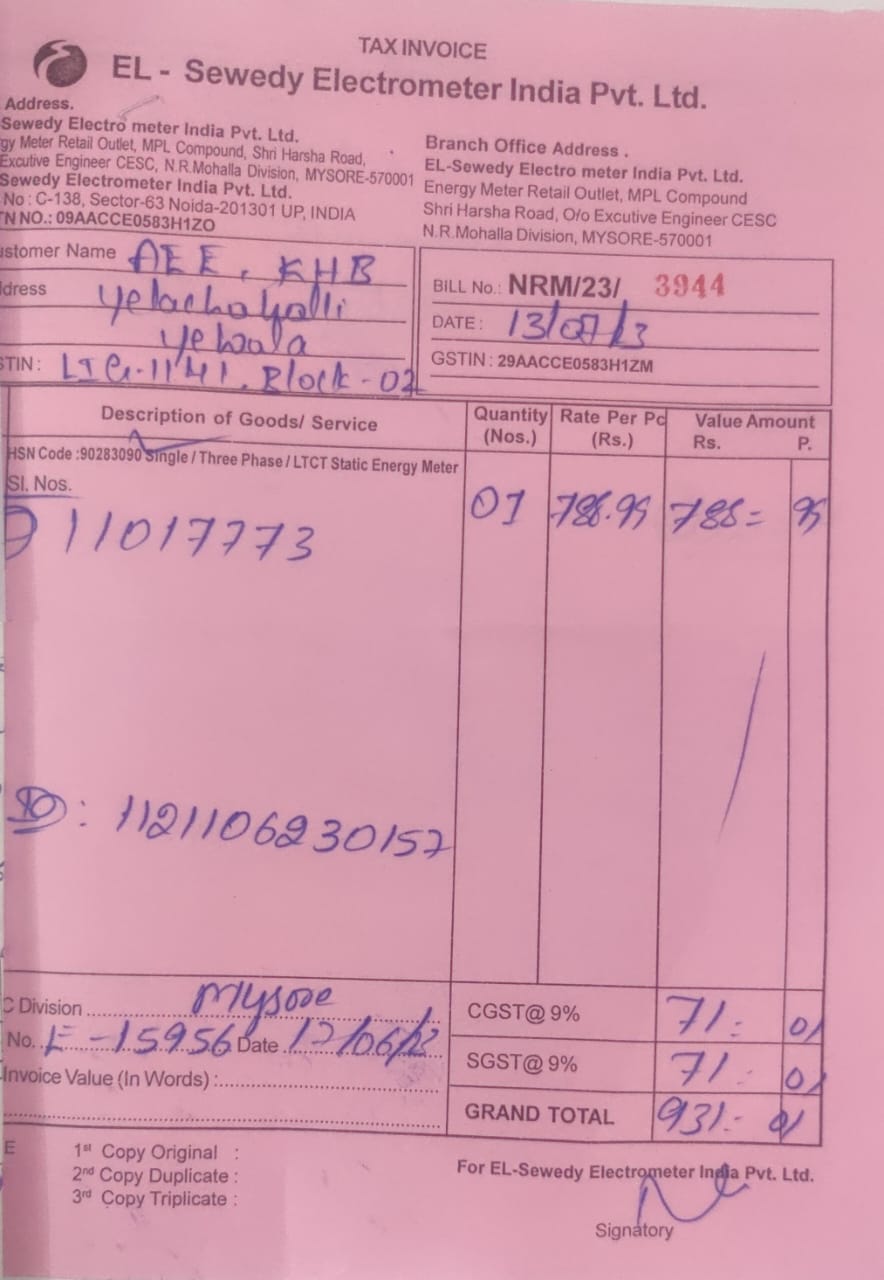 TAX INVOICE
EL - Sewedy Electrometer India Pvt. Ltd.
Address.
Sewedy Electro meter India Pvt. Ltd.
gy Meter Retail Outlet, MPL Compound, Shri Harsha Road,
Excutive Engineer CESC, N.R.Mohalla Division, MYSORE-570001
Sewedy Electrometer India Pvt. Ltd.
No : C-138, Sector-63 Noida-201301 UP, INDIA
TN NO.: 09AACCE0583H1ZO
Branch Office Address .
EL-Sewedy Electro meter India Pvt. Ltd.
Energy Meter Retail Outlet, MPL Compound
Shri Harsha Road, O/o Excutive Engineer CESC
N.R.Mohalla Division, MYSORE-570001
ustomer Name AEE, KHB
ddress Yelachahalli
Yelwala
STIN : LIG-1141, Block-02
BILL No.: NRM/23/ 3944
DATE : 13/07/23
GSTIN : 29AACCE0583H1ZM
Description of Goods/ Service
Quantity (Nos.)
Rate Per Pc (Rs.)
Value Amount
Rs. P.
HSN Code :90283090 Single / Three Phase / LTCT Static Energy Meter
Sl. Nos.
11017773
01 788.95 788= 95
: 1121106230157
C Division Mysore
No. E-15956 Date 17/06/23
Invoice Value (In Words) :
CGST@ 9% 71- 01
SGST@ 9% 71- 01
GRAND TOTAL 931- 01
E
1st Copy Original :
2nd Copy Duplicate :
3rd Copy Triplicate :
For EL-Sewedy Electrometer India Pvt. Ltd.
Signatory